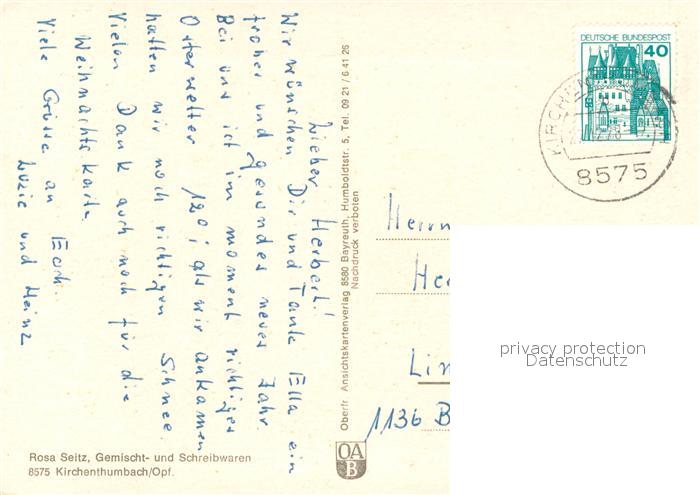 Lieber Herbert!
Wir wünschen Dir und Tante Ella ein
frohes und gesundes neues Jahr.
Bei uns ist im moment richtiges
Osterwetter 120 i als wir ankamen
hatten wir noch richtigen Schnee.
Vielen Dank auch noch für die
Weihnachtskarte.
Viele Grüsse an Euch.
Luzie und Heinz
Oberfr Ansichtskartenverlag 8580 Bayreuth, Humboldtstr. 5, Tel. 09 21 / 6 41 26
Nachdruck verboten
OA
B
DEUTSCHE BUNDESPOST
40
8575
Herrn
He
Lin
1136 B
privacy protection
Datenschutz
Rosa Seitz, Gemischt- und Schreibwaren
8575 Kirchenthumbach/Opf.